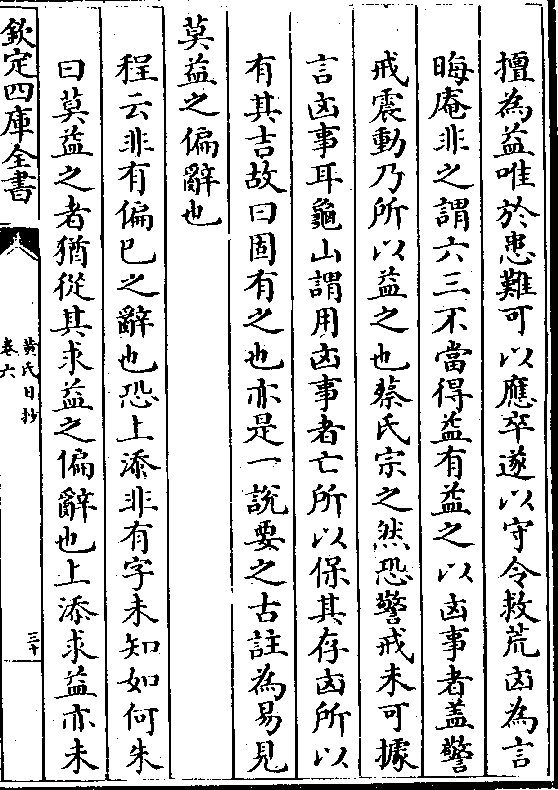 擅為益唯於患難可以應卒遂以守令救荒凶為言
晦庵非之謂六三不當得益有益之以凶事者盖警
戒震動乃所以益之也蔡氏宗之然恐警戒未可據
言凶事耳龜山謂用凶事者亡所以保其存凶所以
有其吉故曰固有之也亦是一說要之古註為易見
莫益之偏辭也
程云非有偏已之辭也恐上添非有字未知如何朱
曰莫益之者猶從其求益之偏辭也上添求益亦未
欽定四庫全書
黄氏日抄
卷六
三十